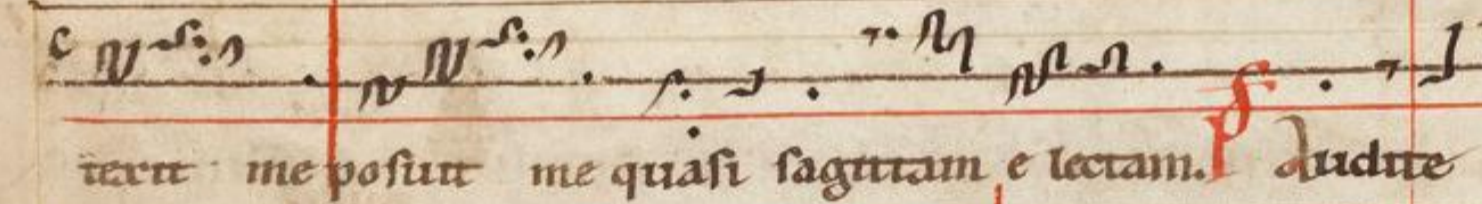 c
texit me posuit me quasi sagittam e lectam. ps Audite